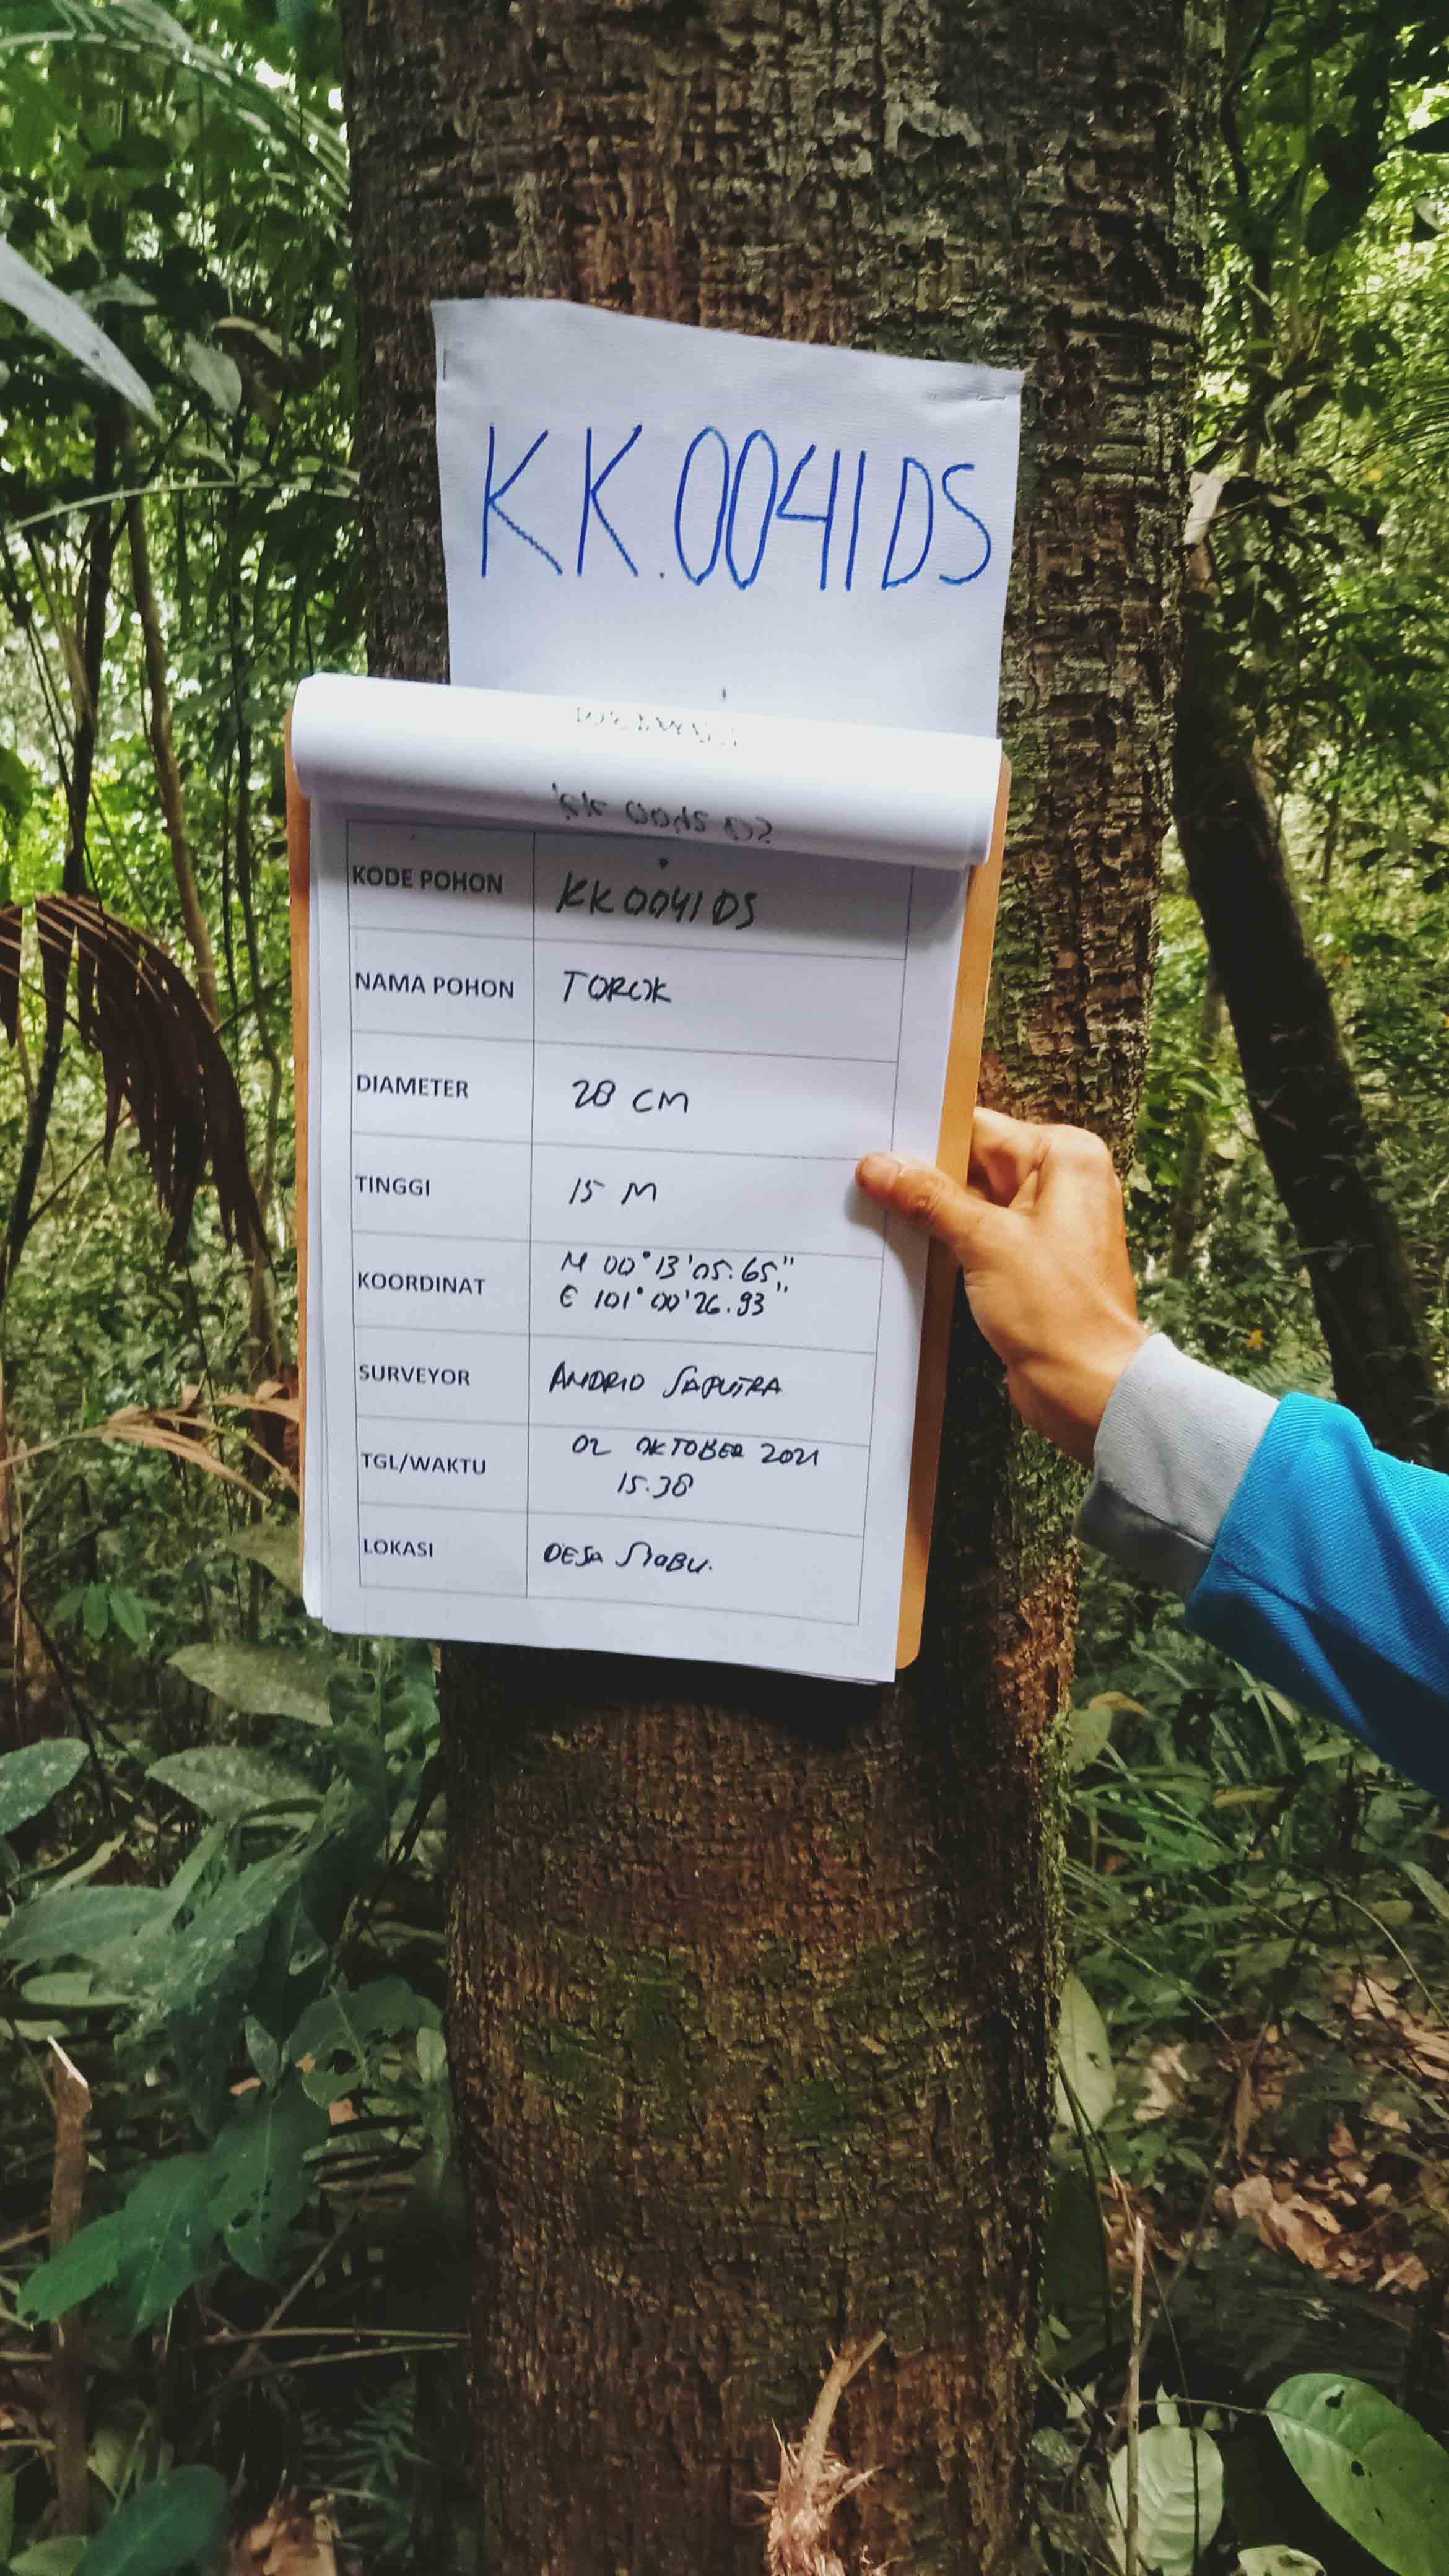 KK.0041DS
KK 0042 DS
KODE POHON KK0041DS
NAMA POHON TOROK
DIAMETER 28 CM
TINGGI 15 M
KOORDINAT N 00° 13' 05.65"
E 101° 00' 26.93"
SURVEYOR ANDRIO SAPUTRA
TGL/WAKTU 02 OKTOBER 2021
15.38
LOKASI DESA SIABU.